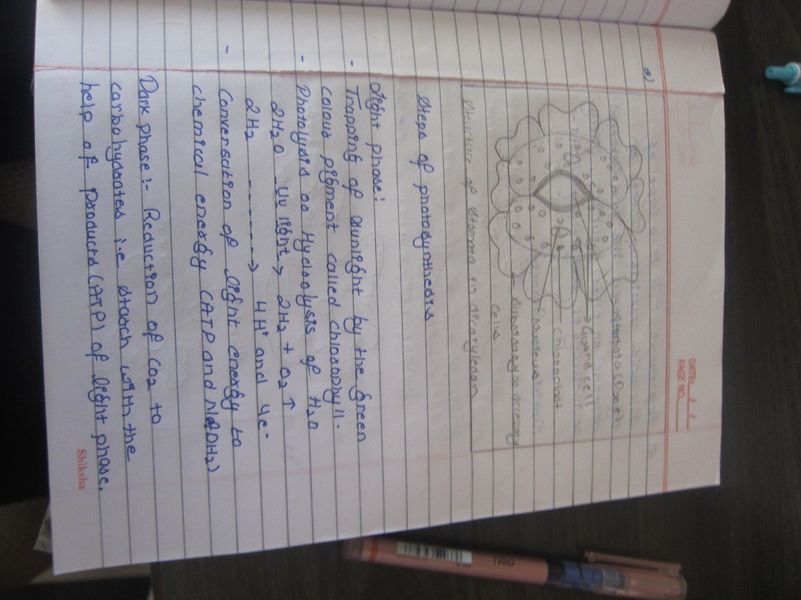 DATE:
PAGE NO.
a)
stomata (Pore)
Guard cell
chloroplast
nucleus
subsidiary or accessory
cells
structure of stomata in dicotyledon
Steps of photosynthesis
Light phase:
- Trapping of sunlight by the Green
colour pigment called chlorophyll.
- Photolysis or Hydrolysis of H2O
2H2O -UV light-> 2H2 + O2 ↑
2H2 -------> 4H+ and 4e-
- Conversation of light energy to
chemical energy (ATP and NADH2)
Dark phase:- Reduction of CO2 to
carbohydrates i.e starch with the
help of Products (ATP) of light phase.
Shiksha